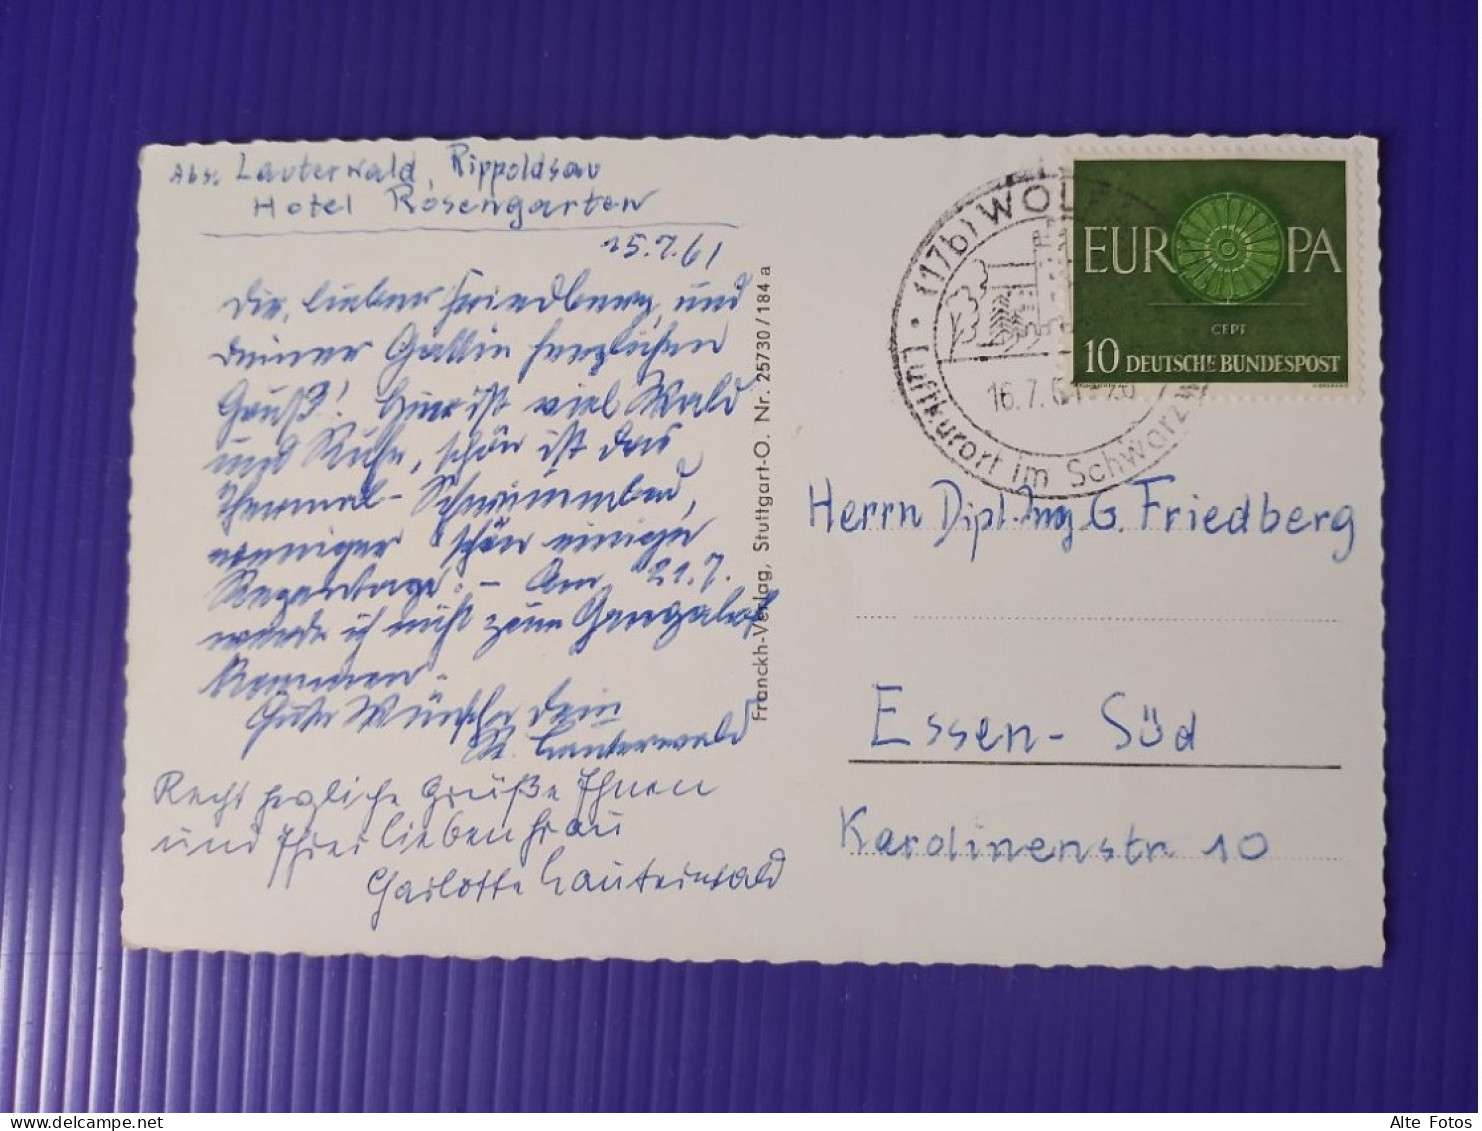 Abs. Lauterwald, Rippoldsau
Hotel Rosengarten
15.7.61
Dir, lieber Friedberg, und
Deiner Gattin herzlichen
Gruß! Hier ist viel Wald
und Ruhe, schön ist das
Thermal-Schwimmbad,
weniger schön einige
Regentage. - Am 21.7.
werde ich nicht zum
kommen.
Gute Wünsche Dein
Lauterwald
Recht herzliche Grüße Ihnen
und Ihrer lieben Frau
Charlotte Lauterwald
Franckh-Verlag, Stuttgart-O. Nr. 25730/184 a
(17b) WOLF
Luftkurort im Schwarzw
16.7.61-20
EUROPA
CEPT
10 DEUTSCHE BUNDESPOST
Herrn Dipl.Ing G. Friedberg
Essen-Süd
Karolinenstr. 10
Alte Fotos